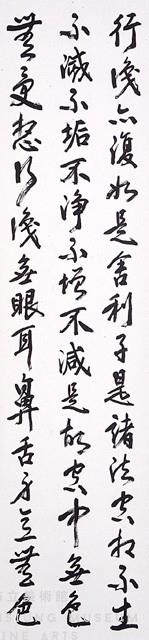 行識亦復如是舍利子是諸法空相不生
不滅不垢不淨不增不減是故空中無色
無受想行識無眼耳鼻舌身意無色
市立美術館
MUSEUM
FINE ARTS